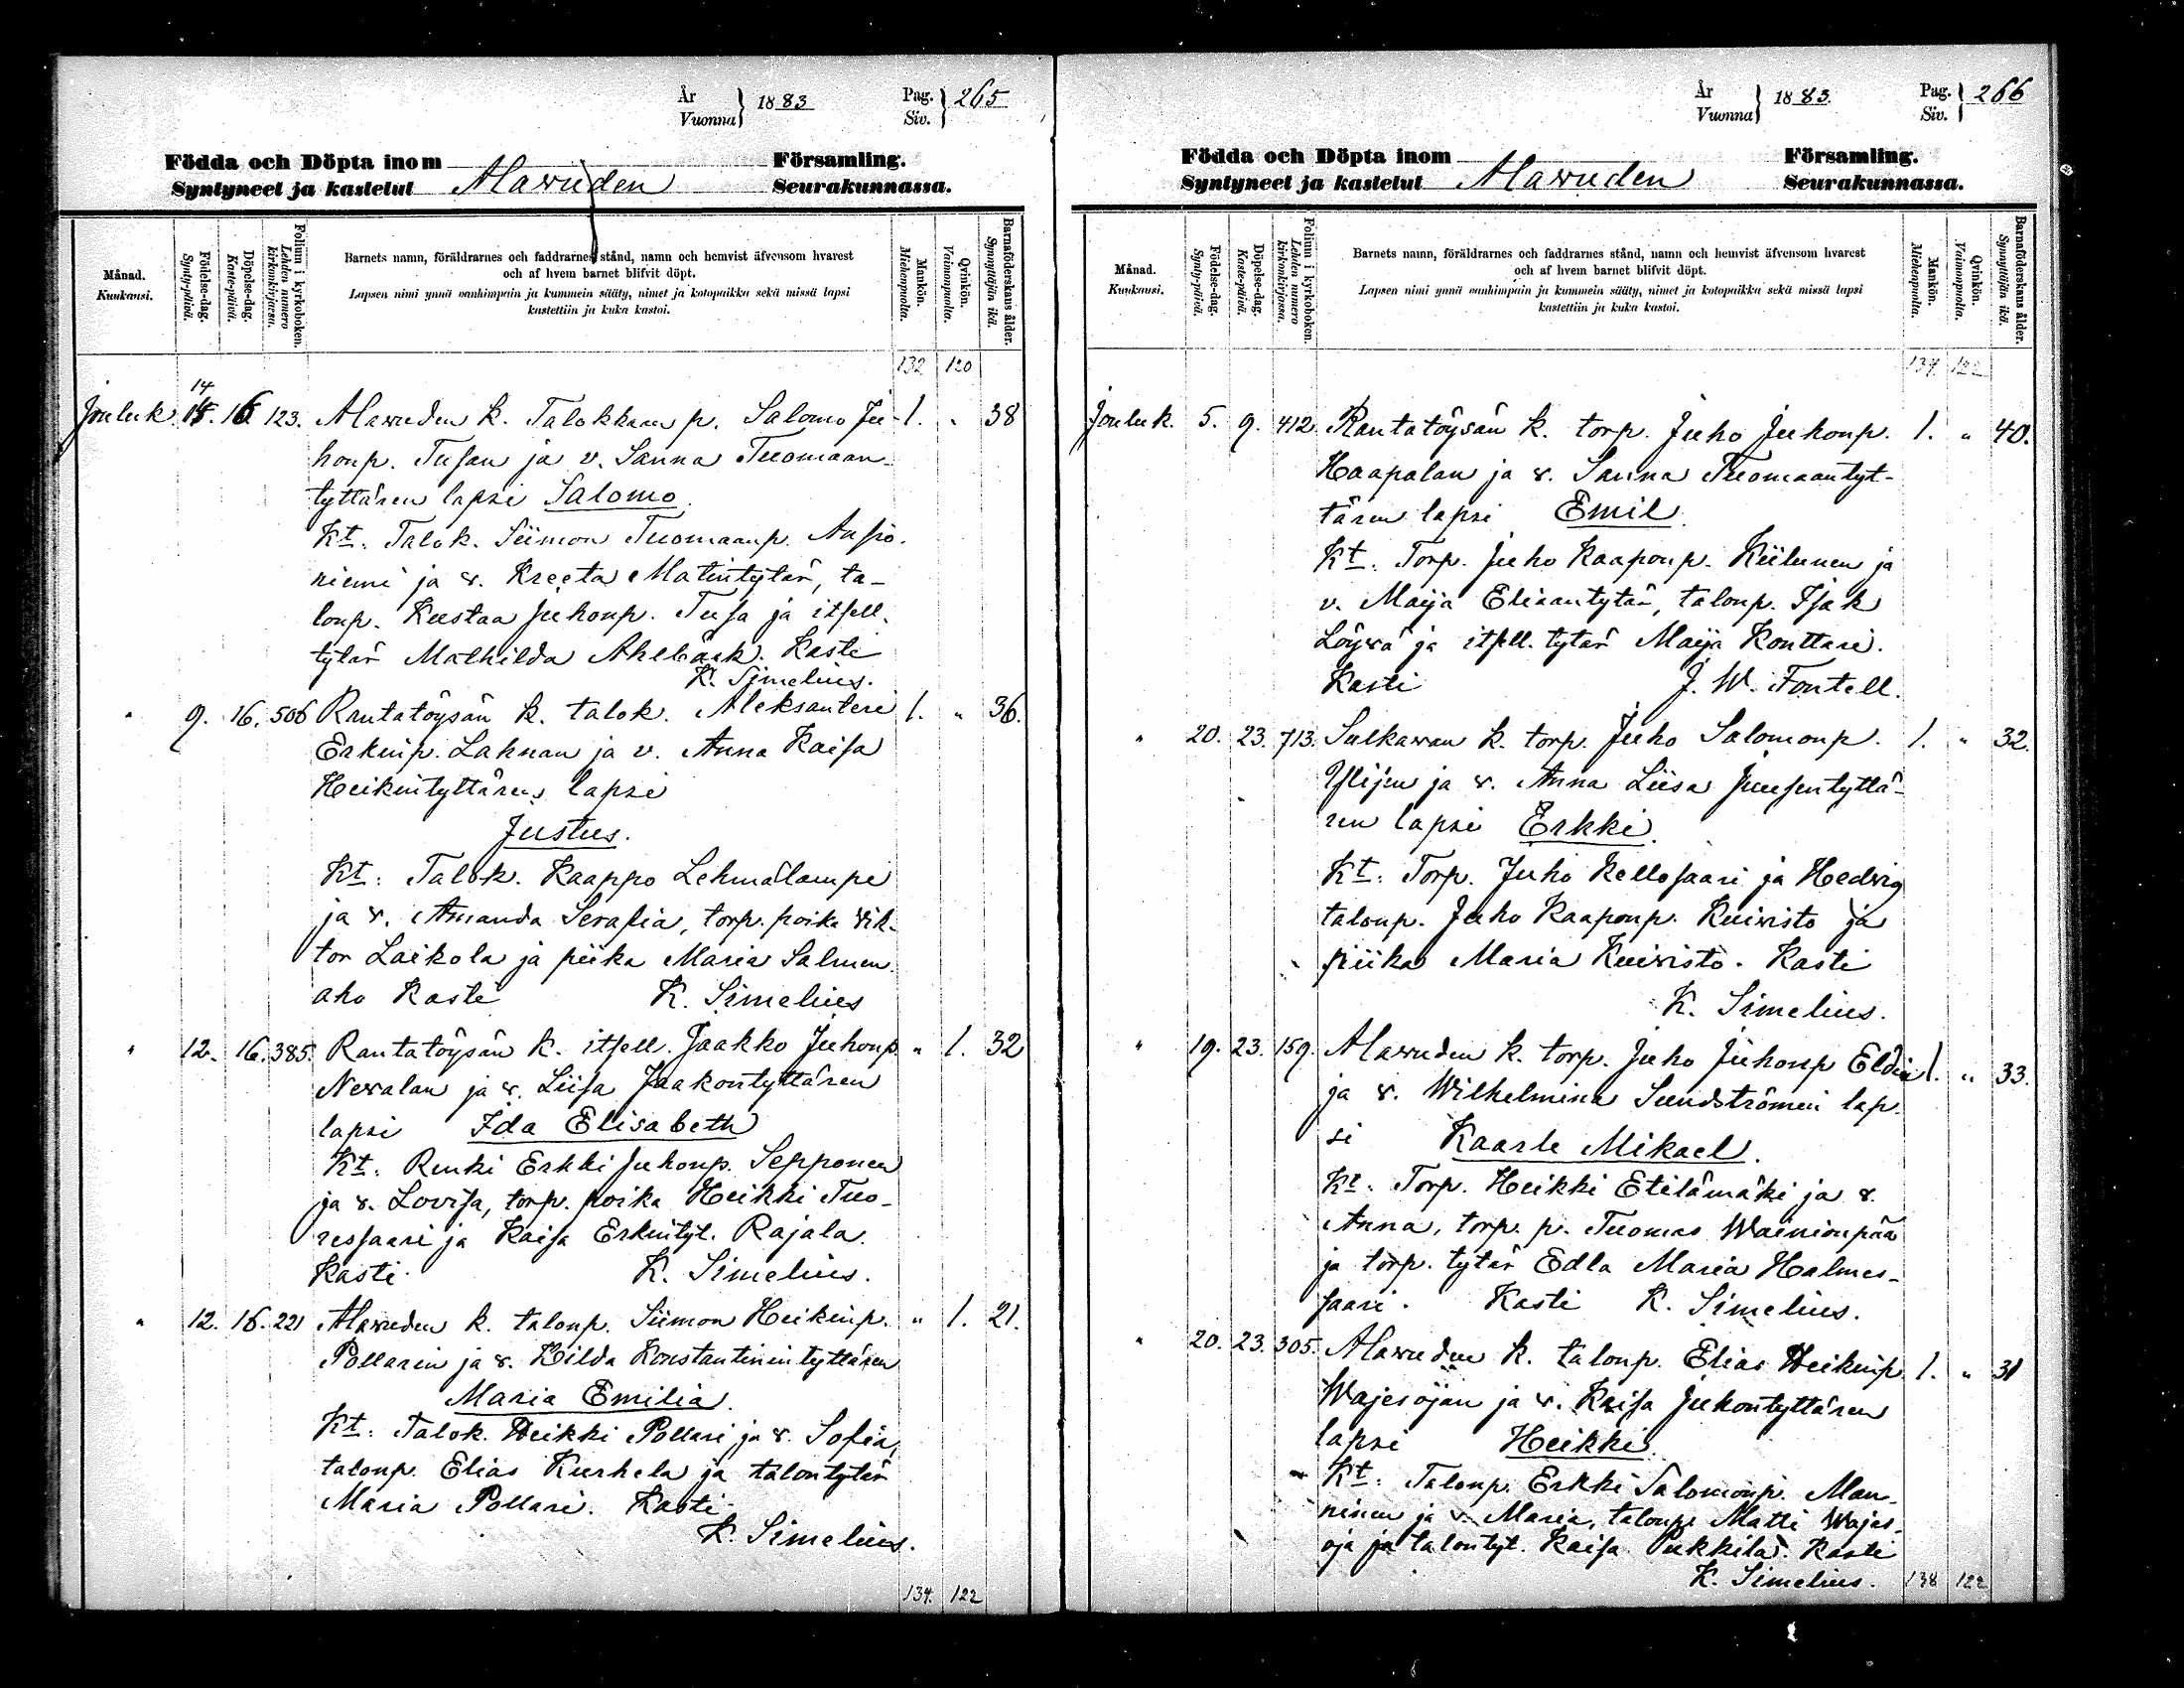 År
Vuonna } 1883
Pag.
Siv. } 265
Födda och Döpta inom Församling.
Syntyneet ja kastetut Alawuden Seurakunnassa.
Månad.
Kuukausi.
Födelse-dag.
Synty-päivä.
Döpelse-dag.
Kaste-päivä.
Folium i kyrkoboken.
Lehden numero
kirkonkirjassa.
Barnets namn, föräldrarnes och faddrarnes stånd, namn och hemvist äfvensom hvarest
och af hvem barnet blifvit döpt.
Lapsen nimi ynnä vanhimpain ja kummein sääty, nimet ja kotopaikka sekä missä lapsi
kastettiin ja kuka kastoi.
Mankön.
Miehenpuolta.
Qvinkön.
Vaimonpuolta.
Barnaföderskans ålder.
Synnyttäjän ikä.
132 120
14
Jouluk. 16. 123. Alawuden k. Talokkaan p. Salomo Ju- 1. " 38
honp. Tusan ja v. Sanna Tuomaan-
tyttären lapsi Salomo.
Kt: Talok. Siimon Tuomaanp. Ansio-
niemi ja v. Kreeta Matintytär, ta-
lonp. Kustaa Juhonp. Tusa ja itsell.
tytär Mathilda Ahlbäck. Kasti
K. Simelius.
" 9. 16. 506 Rantatöysän k. talok. Aleksanteri 1. " 36.
Erkinp. Lahnan ja v. Anna Kaisa
Heikintyttären lapsi
Justus.
Kt: Talok. Kaappo Lehmälampi
ja v. Amanda Serafia, torp. poika Wik-
tor Laikola ja piika Maria Salmen-
aho Kasti K. Simelius
" 12. 16. 385. Rantatöysän k. itsell. Jaakko Juhonp. " 1. 32
Newalan ja v. Liisa Jaakontyttären
lapsi Ida Elisabeth
Kt: Renki Erkki Juhonp. Sepponen
ja v. Lovisa, torp. poika Heikki Tuo-
ressaari ja Kaisa Erkintyt. Rajala.
Kasti K. Simelius.
" 12. 16. 221 Alawuden k. talonp. Siimon Heikinp. " 1. 21.
Pollarin ja v. Hilda Konstantinintyttären
Maria Emilia.
Kt: Talok. Heikki Pollari ja v. Sofia,
talonp. Elias Kurhela ja talontytär
Maria Pollari. Kasti
K. Simelius.
134. 122
År
Vuonna } 1883.
Pag.
Siv. } 266
Födda och Döpta inom Församling.
Syntyneet ja kastetut Alawuden Seurakunnassa.
Månad.
Kuukausi.
Födelse-dag.
Synty-päivä.
Döpelse-dag.
Kaste-päivä.
Folium i kyrkoboken.
Lehden numero
kirkonkirjassa.
Barnets namn, föräldrarnes och faddrarnes stånd, namn och hemvist äfvensom hvarest
och af hvem barnet blifvit döpt.
Lapsen nimi ynnä vanhimpain ja kummein sääty, nimet ja kotopaikka sekä missä lapsi
kastettiin ja kuka kastoi.
Mankön.
Miehenpuolta.
Qvinkön.
Vaimonpuolta.
Barnaföderskans ålder.
Synnyttäjän ikä.
134. 122
Jouluk. 5. 9. 412. Rantatöysän k. torp. Juho Juhonp. 1. " 40.
Haapalan ja v. Sanna Tuomaantyt-
tären lapsi Emil.
Kt: Torp. Juho Kaaponp. Kiilunen ja
v. Maija Eliaantytär, talonp. Isak
Löywä ja itsell. tytär Maija Konttari.
Kasti J. W. Fontell.
" 20. 23. 713. Sulkawan k. torp. Juho Salomonp. 1. " 32.
Ylijen ja v. Anna Liisa Juusentyttä-
ren lapsi Erkki.
Kt: Torp. Juho Kellosaari ja Hedwig
talonp. Juho Kaaponp. Kuiwisto ja
piika Maria Kuiwisto. Kasti
K. Simelius.
" 19. 23. 159. Alawuden k. torp. Juho Juhonp Eldin 1. " 33.
ja v. Wilhelmina Sundströmin lap-
si Kaarle Mikael.
Kt: Torp. Heikki Etilämäki ja v.
Anna, torp. p. Tuomas Wainionpää
ja torp. tytär Edla Maria Halmes-
saari. Kasti K. Simelius.
" 20. 23. 305. Alawuden k. talonp. Elias Heikinp. 1. " 31
Wajesojan ja v. Kaisa Juhontyttären
lapsi Heikki.
Kt: Talonp. Erkki Salomonp. Man-
ninen ja v. Maria, talonp. Matti Wajes-
oja ja talontyt. Kaisa Pukkila. Kasti
K. Simelius. 138 122